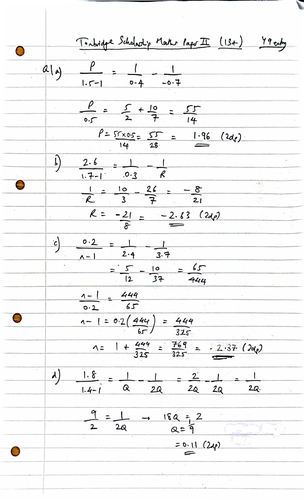 Tonbridge Scholarship Maths Paper II (13+) Y9 entry
Q1 a) P/(1.5-1) = 1/0.4 - 1/-0.7
P/0.5 = 5/2 + 10/7 = 55/14
P = 55×0.5/14 = 55/28 = 1.96 (2dp)
b) 2.6/(1.7-1) = 1/0.3 - 1/R
1/R = 10/3 - 26/7 = -8/21
R = -21/8 = -2.63 (2dp)
c) 0.2/(n-1) = 1/2.4 - 1/3.7
= 5/12 - 10/37 = 65/444
(n-1)/0.2 = 444/65
n-1 = 0.2(444/65) = 444/325
n = 1 + 444/325 = 769/325 = 2.37 (2dp)
d) 1.8/(1.4-1) = 1/Q - 1/2Q = 2/2Q - 1/2Q = 1/2Q
9/2 = 1/2Q → 18Q = 2
Q = 1/9
= 0.11 (2dp)